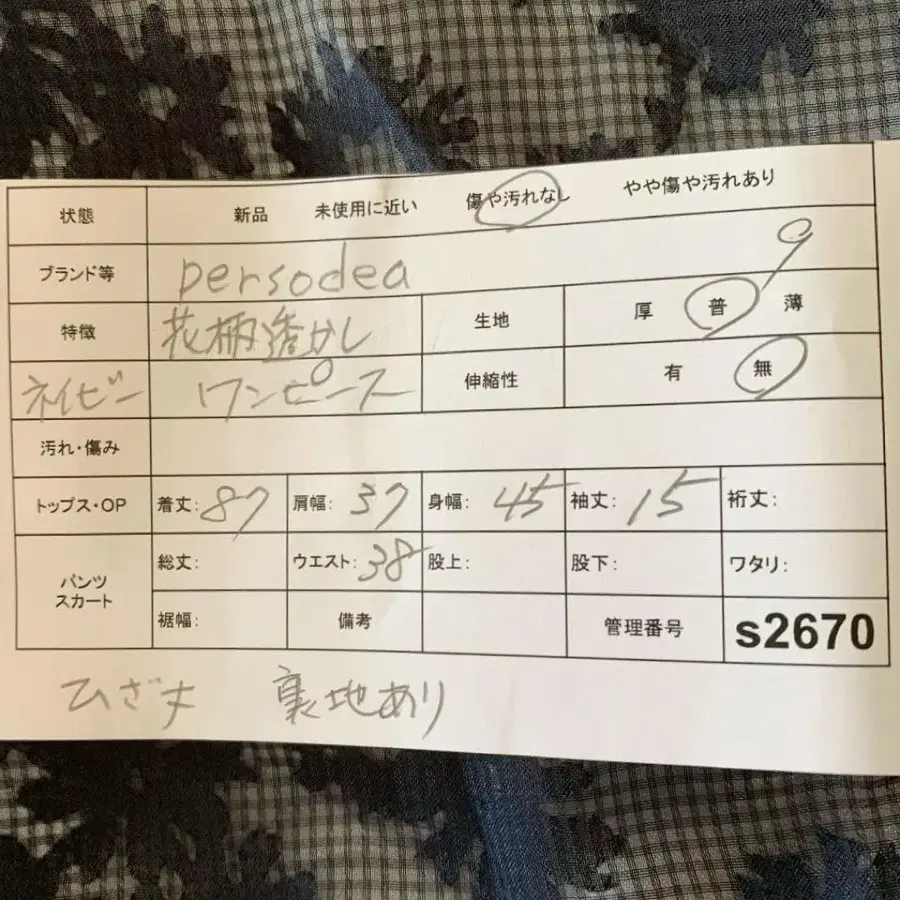 状態 新品 未使用に近い 傷や汚れなし やや傷や汚れあり
ブランド等 persodea 9
特徴 花柄透かし 生地 厚 普 薄
ネイビー ワンピース 伸縮性 有 無
汚れ・傷み
トップス・OP 着丈: 87 肩幅: 37 身幅: 45 袖丈: 15 裄丈:
パンツ スカート 総丈: ウエスト: 38 股上: 股下: ワタリ:
裾幅: 備考 管理番号 s2670
ひざ丈 裏地あり